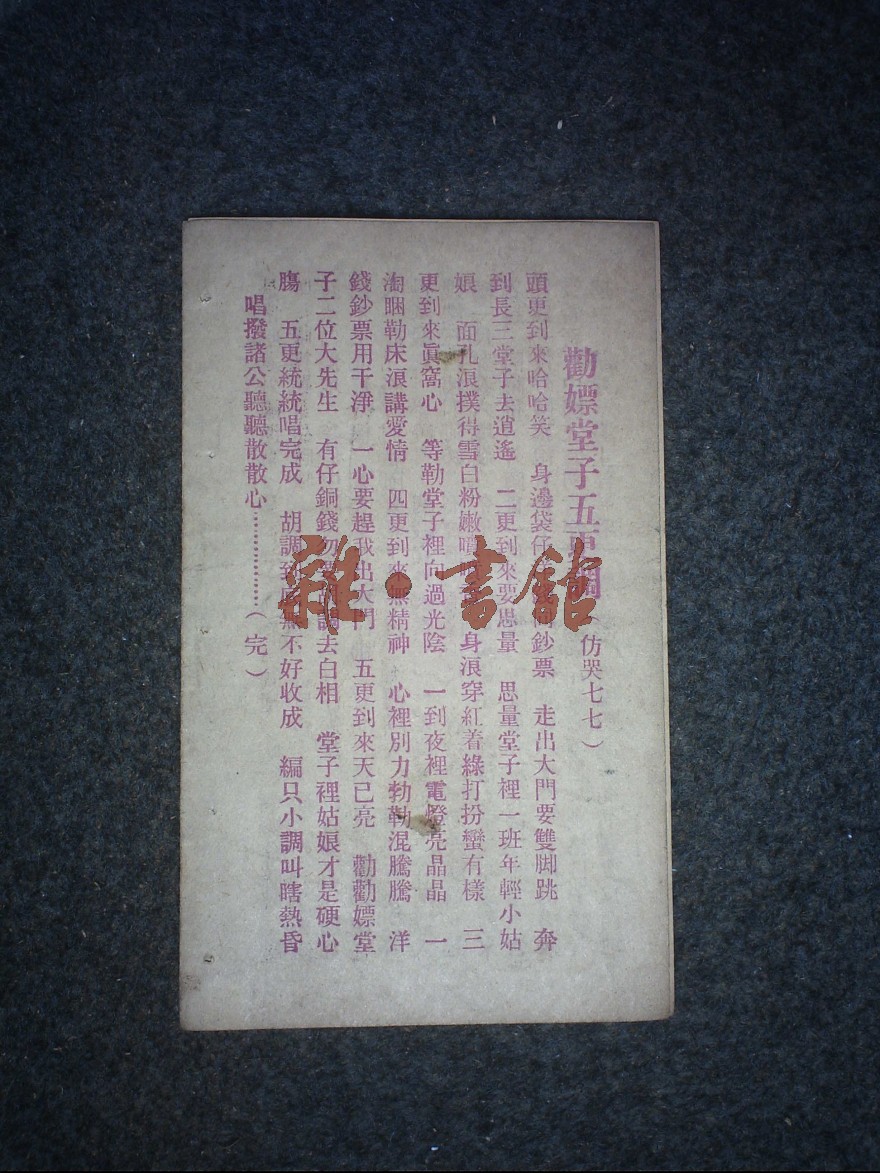 勸嫖堂子五更調(仿哭七七)
頭更到來哈哈笑　身邊袋仔鈔票　走出大門要雙脚跳　奔
到長三堂子去逍遙　二更到來要思量　思量堂子裡一班年輕小姑
娘　面孔浪撲得雪白粉嫩　身浪穿紅着綠打扮蠻有樣　三
更到來眞窩心　等勒堂子裡向過光陰　一到夜裡電燈亮晶晶　一
淘睏勒床浪講愛情　四更到來無精神　心裡別力勃勒混騰騰　洋
錢鈔票用干淨　一心要趕我出大門　五更到來天已亮　勸勸嫖堂
子二位大先生　有仔銅錢勿要去白相　堂子裡姑娘才是硬心
腸　五更統統唱完成　胡調到無不好收成　編只小調叫瞎熱昏
唱撥諸公聽聽散散心………………(完)
雜·書館